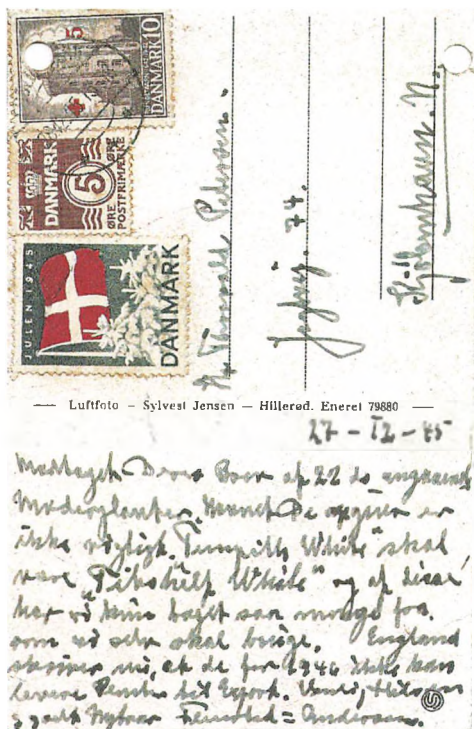 DANMARK 10
5
DANMARK
5
ØRE
POSTFRIMÆRKE
JULEN 1945
DANMARK
Hr. Thorvald Petersen.
74.
Kjøbenhavn. N.
— Luftfoto – Sylvest Jensen – Hillerød. Eneret 79880 —
27-12-45
Modtaget Deres Brev af 22 ds angaaende
Moderplanter. Navnet De opgiver er
ikke rigtigt. White" skal
være White" og af disse
har vi kun taget saa mange fra
som vi selv skal bruge. England
skriver nu, at de før 1946 ikke kan
levere Planter til Export. Venlig Hilsen
og godt Nytaar Flemsted=Andersen.